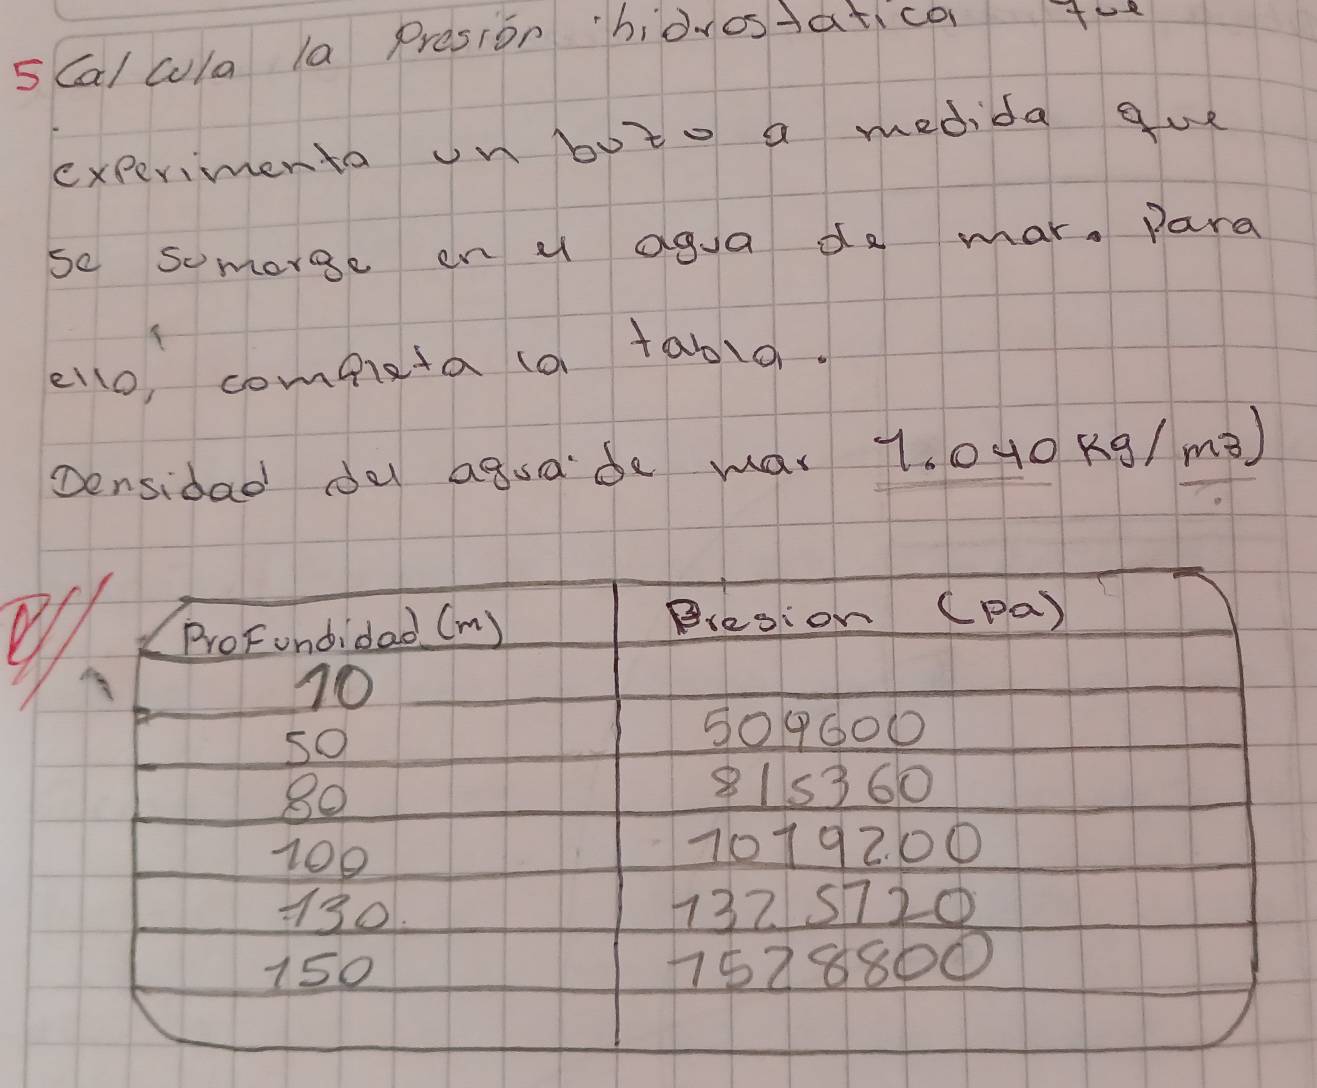 5 Calcula la Presión hidrostatica que
experimenta un buzo a medida que
se sumerge en el agua de mar. Para
ello, completa la tabla.
Densidad del agua de mar 1.040 Kg/m3)
Profundidad (m) Presion (Pa)
10
50 509600
80 815360
100 1019200
130 1325120
150 1528800